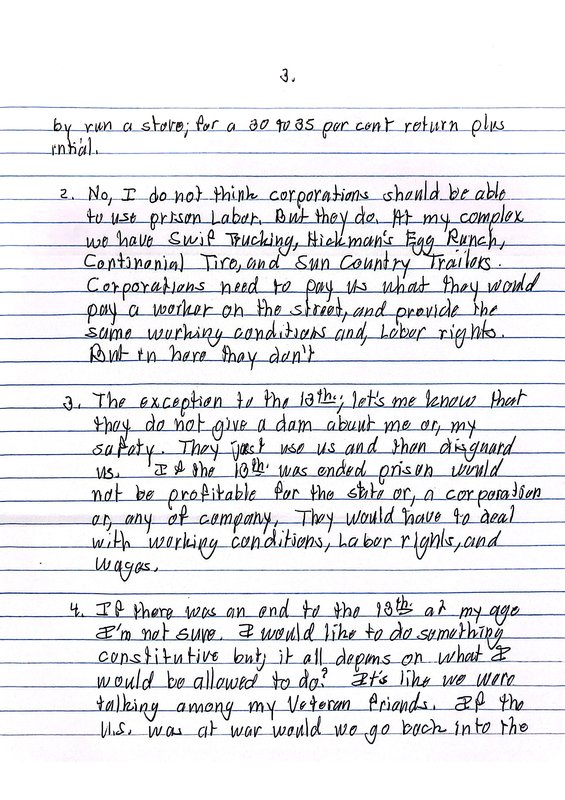 3.
by run a store; for a 30 to 35 per cent return plus
intial.
2. No, I do not think corporations should be able
to use prison Labor. But they do. At my complex
we have Swif Trucking, Hickman's Egg Ranch,
Continonial Tire, and Sun Country Trailers.
Corporations need to pay us what they would
pay a worker on the street, and provide the
same working conditions and, Labor rights.
But in here they don't
3. The exception to the 13th; let's me know that
they do not give a dam about me or, my
safety. They just use us and then disguard
us. If the 13th was ended prison would
not be profitable for the state or, a corporation
or, any of company, They would have to deal
with working conditions, Labor rights, and
wages.
4. If there was an end to the 13th at my age
I'm not sure. I would like to do something
constitutive but; it all depens on what I
would be allowed to do? It's like we were
talking among my Veteran friends. If the
U.S. was at war would we go back into the